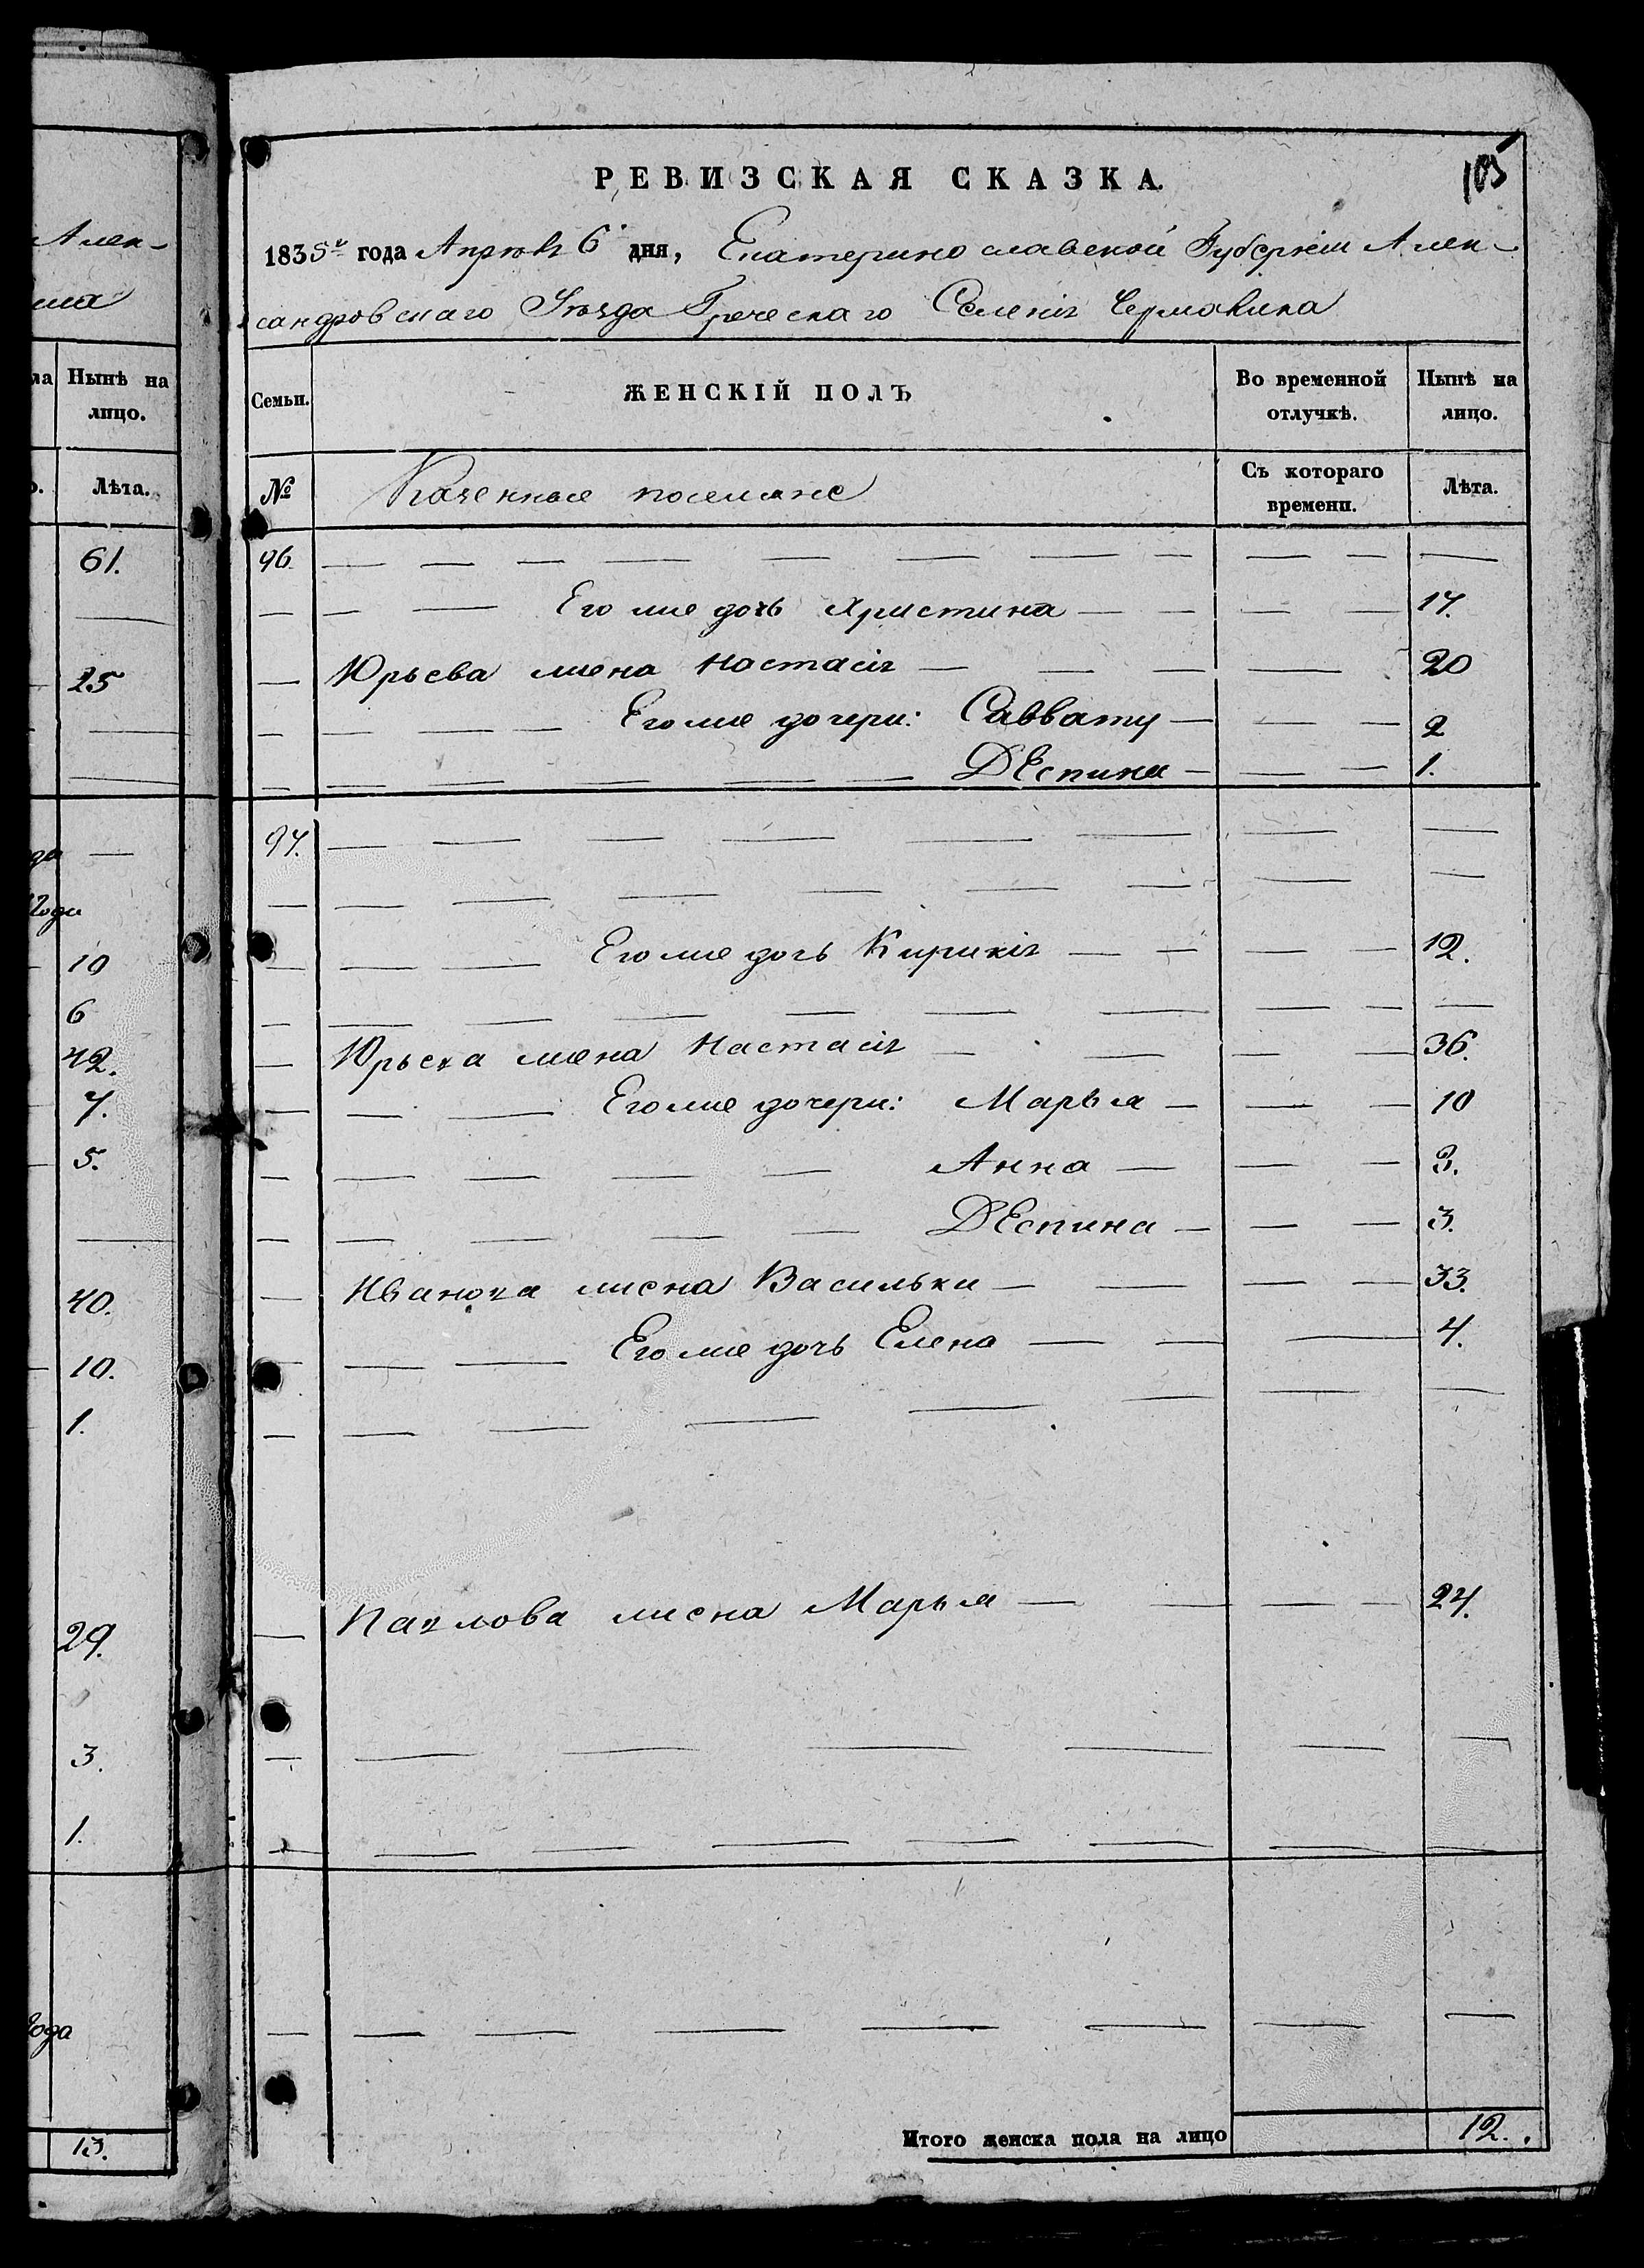 Алек-
Нынѣ на
лицо.
Лѣта.
61.
25
10
6
42.
7.
5.
40.
10.
1.
29.
3.
1.
года
13.
105
РЕВИЗСКАЯ СКАЗКА.
1835го года Апрѣля 6 дня, Екатеринославской Губерніи Алек-
сандровскаго Уѣзда Греческаго Селенія Чермалыка
Семьи. ЖЕНСКІЙ ПОЛЪ Во временной отлучкѣ. Нынѣ на лицо.
№ Казенные поселяне Съ котораго времени. Лѣта.
96. — — — — — — — — — —
— — — Его же дочь Христина — — — — 17.
— Юрьева жена Настасія — — — — 20
— — — — Его же дочери: Саввату — — — 2
— — — — — — Деспина — — — 1.
97. — — — — — — — —
— — — — — — — —
— — — Его же дочь Кирикія — — — — 12.
— — — — — — — — — —
— Юрьева жена Настасія — — — — 36.
— — — Его же дочери: Марья — — — 10
— — — — — Анна — — — 3.
— — — — — — Деспина — — — 3.
— Иванова жена Васильки — — — — 33.
— — — Его же дочь Елена — — — 4.
— — — — — — — —
— Павлова жена Марья — — — — 24.
— — — — — — —
— — — — — — — —
— — — — — — — —
Итого женска пола на лицо 12.